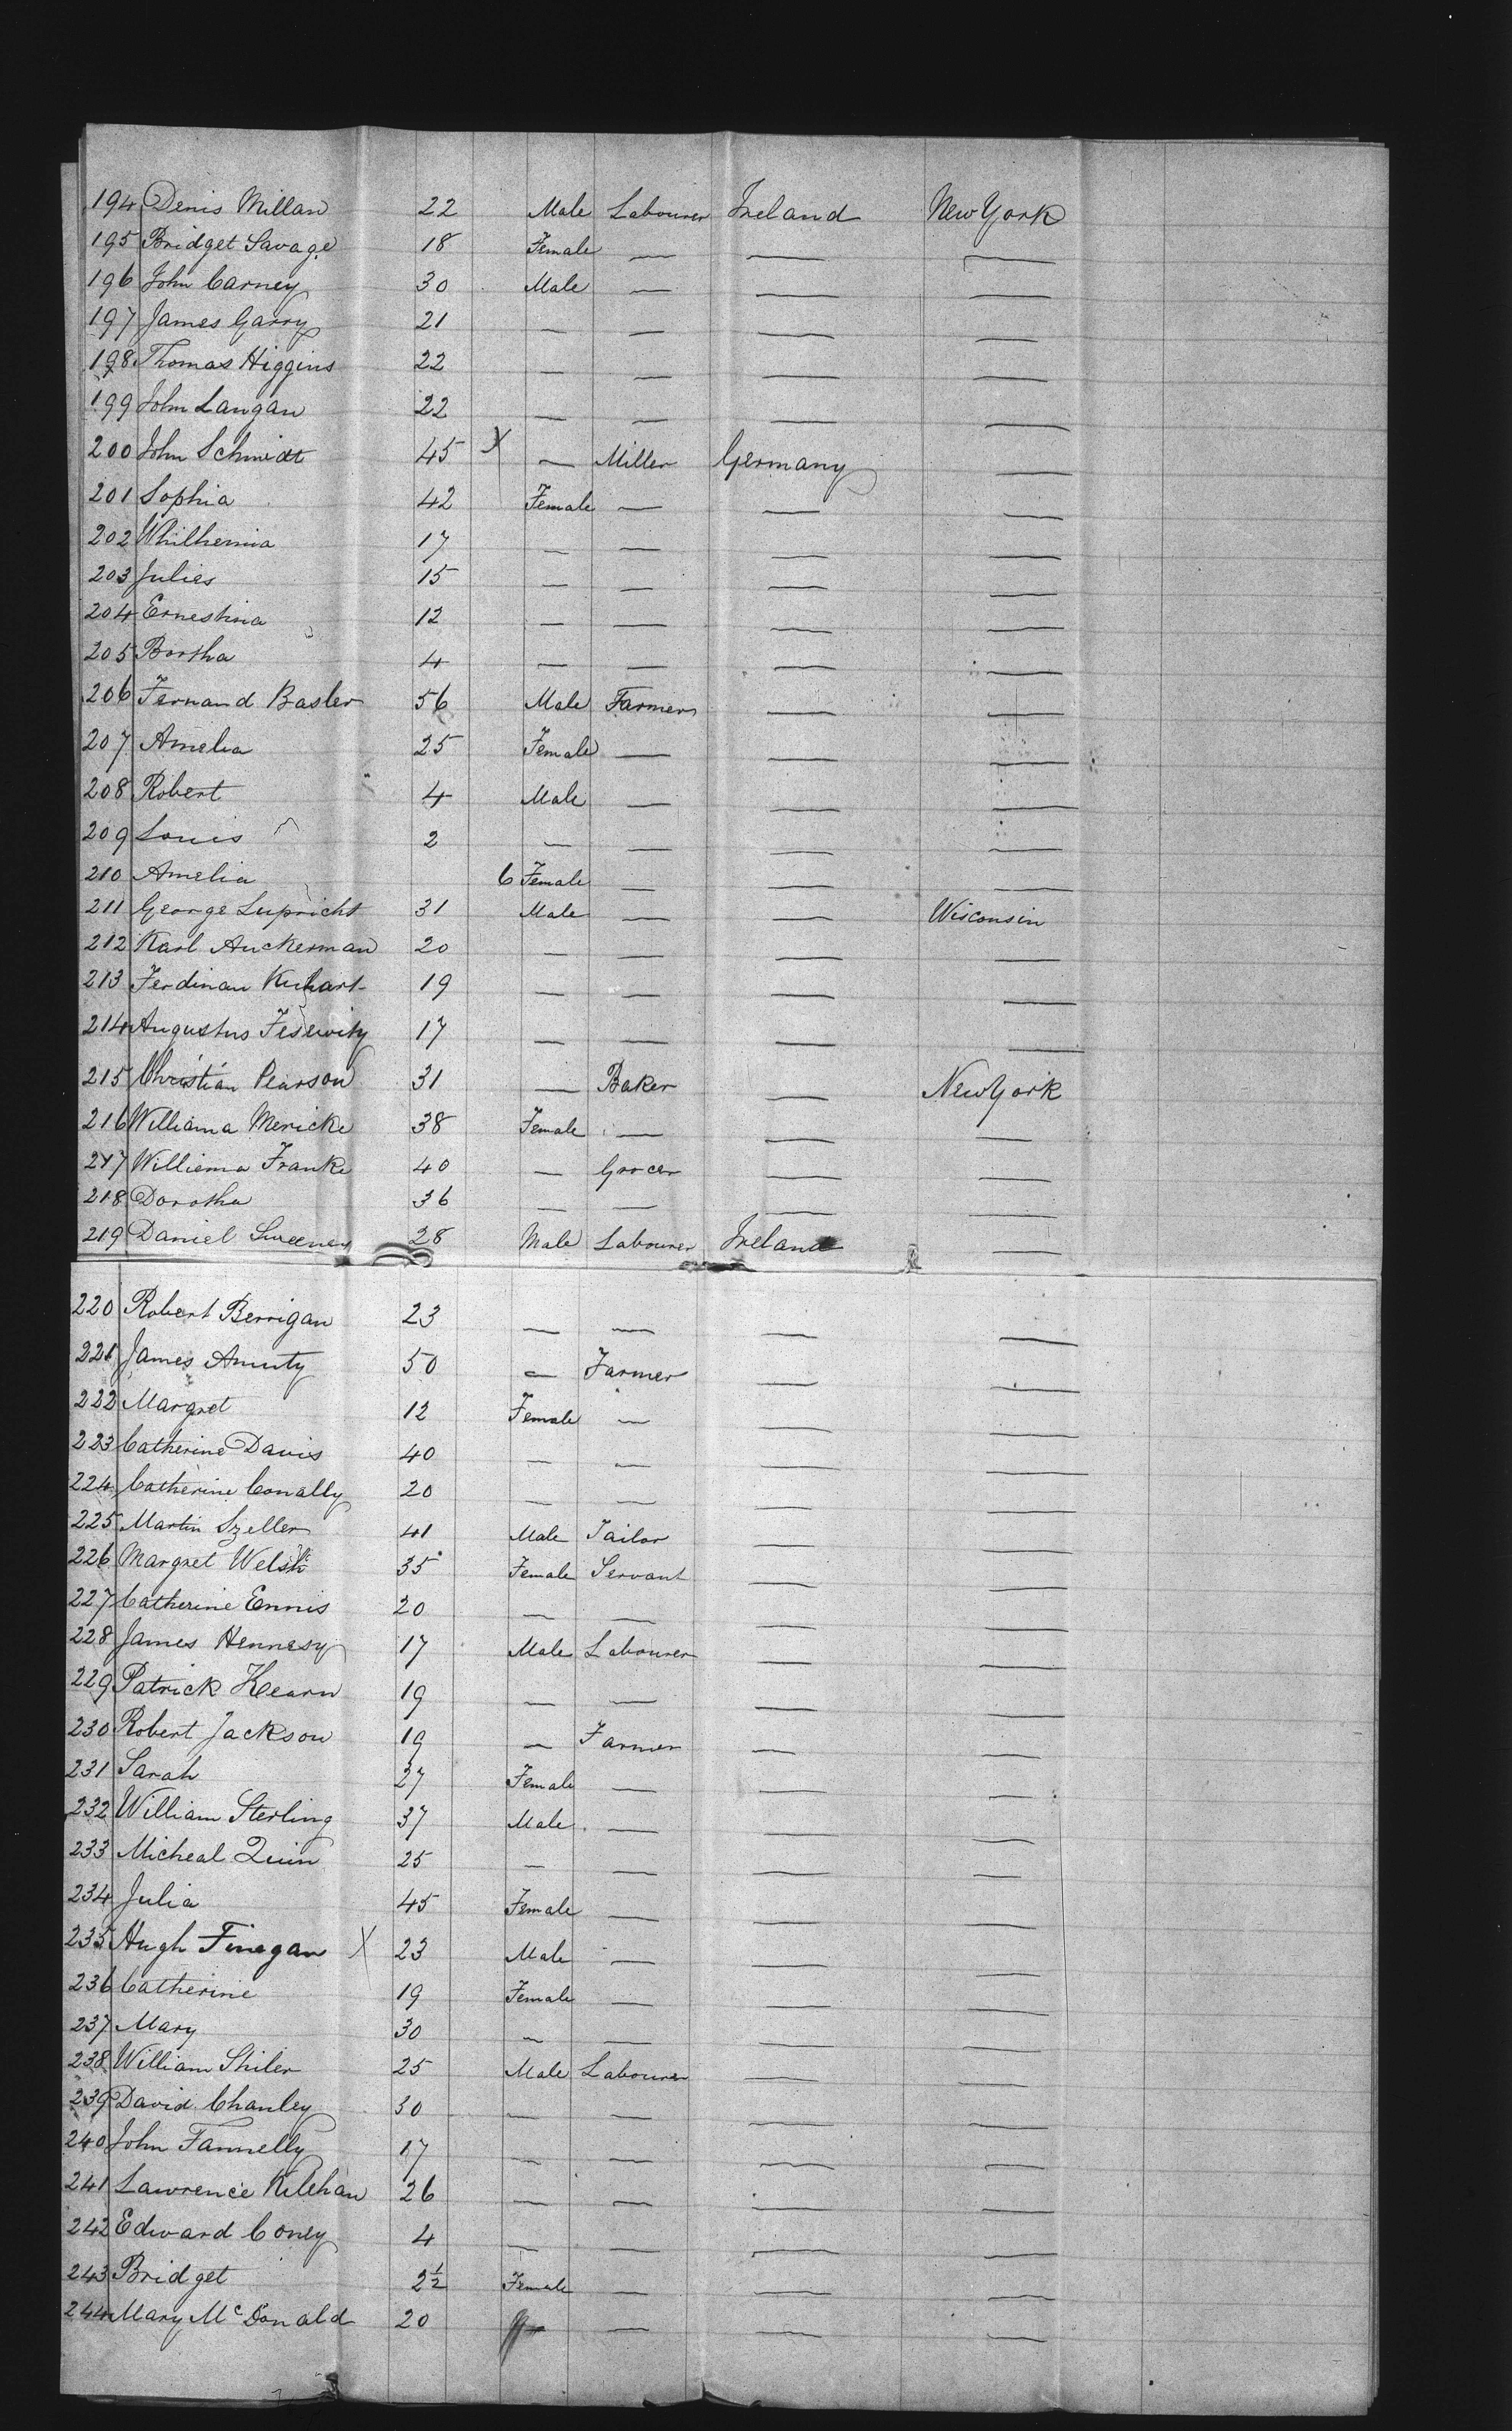 194 Denis Millan 22 Male Labourer Ireland New York
195 Bridget Savage 18 Female — — —
196 John Carney 30 Male — — —
197 James Garry 21 — — — —
198 Thomas Higgins 22 — — — —
199 John Langan 22 — — — —
200 John Schmidt 45 X — Miller Germany —
201 Sophia 42 Female — — —
202 Whilhemia 17 — — — —
203 Julies 15 — — — —
204 Ernestina 12 — — — —
205 Bertha 4 — — — —
206 Fernand Basler 56 Male Farmer — —
207 Amelia 25 Female — — —
208 Robert 4 Male — — —
209 Louis 2 — — — —
210 Amelia 6 Female — — —
211 George Lupricht 31 Male — — Wisconsin
212 Karl Auckerman 20 — — — —
213 Ferdinan 19 — — — —
214 Augustus 17 — — — —
215 Christian Pearson 31 — Baker — New York
216 Williama Mericke 38 Female — — —
217 Williema Franke 40 — Grocer — —
218 Dorotha 36 — — — —
219 Daniel Sweeney 28 Male Labourer Ireland —
220 Robert Berrigan 23 — — — —
221 James Amuty 50 — Farmer — —
222 Margret 12 Female — — —
223 Catherine Davis 40 — — — —
224 Catherine Conally 20 — — — —
225 Martin Szeller 41 Male Tailor — —
226 Margret Welsh 35 Female Servant — —
227 Catherine Ennis 20 — — — —
228 James Hennesy 17 Male Labourer — —
229 Patrick Hearn 19 — — — —
230 Robert Jackson 19 — Farmer — —
231 Sarah 27 Female — — —
232 William Sterling 37 Male — — —
233 Micheal Quin 25 — — — —
234 Julia 45 Female — — —
235 Hugh Finegan X 23 Male — — —
236 Catherine 19 Female — — —
237 Mary 30 — — — —
238 William Shiler 25 Male Labourer — —
239 David Chanley 30 — — — —
240 John Fannelly 17 — — — —
241 Lawrence Kilehan 26 — — — —
242 Edward Coney 4 — — — —
243 Bridget 2½ Female — — —
244 Mary McDonald 20 — — —